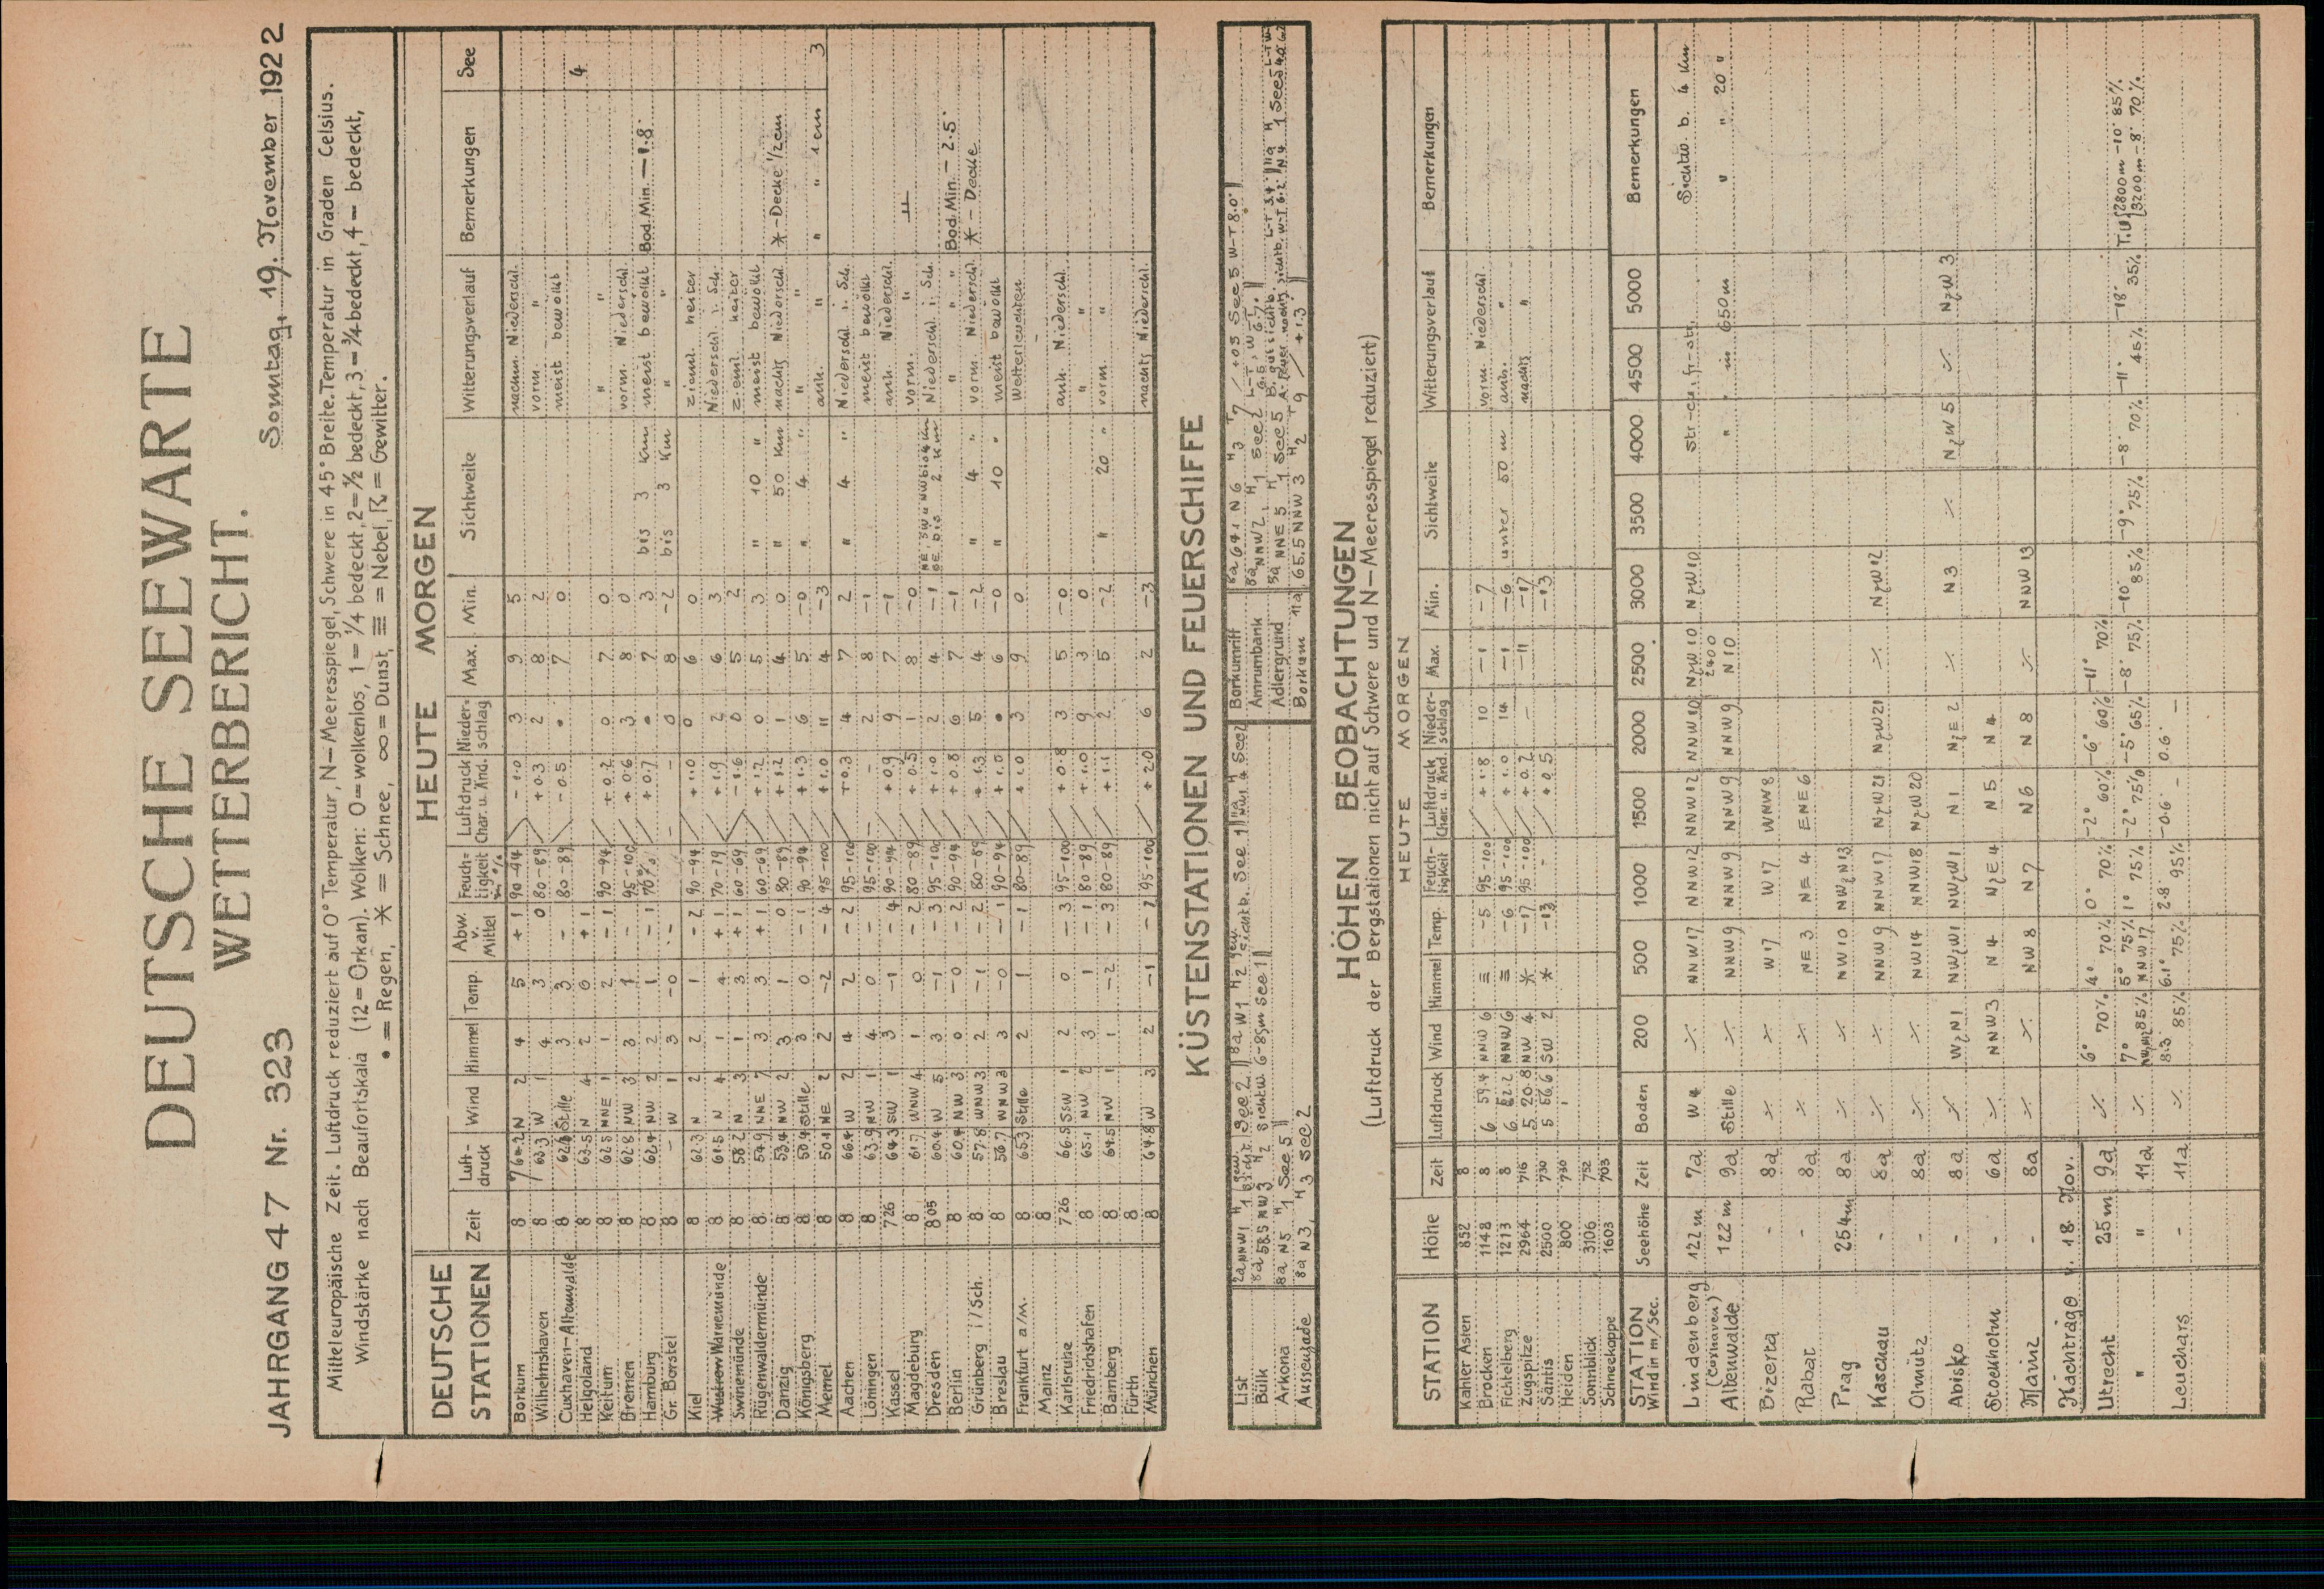 DEUTSCHE SEEWARTE
WETTERBERICHT.
JAHRGANG 47 Nr. 323 Sonntag, 19. November 1922
Mitteleuropäische Zeit. Luftdruck reduziert auf 0° Temperatur, N—Meeresspiegel, Schwere in 45° Breite. Temperatur in Graden Celsius.
Windstärke nach Beaufortskala (12 = Orkan). Wolken: 0 = wolkenlos, 1 = ¼ bedeckt, 2 = ½ bedeckt, 3 = ¾ bedeckt, 4 — bedeckt,
• = Regen, ✳ = Schnee, ∞ = Dunst, ≡ = Nebel, ☈ = Gewitter.
DEUTSCHE STATIONEN HEUTE MORGEN
Zeit Luft-druck Wind Himmel Temp. Abw. v. Mittel Feuch-tigkeit in % Luftdruck Char. u. Änd. Nieder-schlag Max. Min. Sichtweite Witterungsverlauf Bemerkungen See
Borkum 8 764.2 N 2 4 5 +1 90-94 -1.0 3 9 5 nachm. Niederschl.
Wilhelmshaven 8 63.3 W 1 4 3 0 80-89 +0.3 2 8 2 vorm. "
Cuxhaven-Altenwalde 8 62.6 Stille 3 3 - 80-89 -0.5 • 7 0 meist bewölkt
Helgoland 8 63.5 N 4 2 6 +1 4
Keitum 8 62.5 NNE 1 1 2 -1 90-94 +0.2 0 7 0 " "
Bremen 8 62.8 NW 3 3 1 - 95-100 +0.6 3 8 0 vorm. Niederschl.
Hamburg 8 62.4 NW 2 2 1 -1 70% +0.7 • 7 3 bis 3 Km meist bewölkt Bod. Min. —1.8°
Gr. Borstel 8 - W 1 3 -0 - - - 0 8 -2 bis 3 Km " "
Kiel 8 62.3 N 2 2 1 -2 90-94 +1.0 0 6 0 ziemt. heiter
Wustrow Warnemünde 8 61.5 N 4 1 4 +1 70-79 +1.9 2 6 3 Niederschl. i. Sch.
Swinemünde 8 58.2 N 3 1 3 +1 60-69 -1.6 0 5 2 ziemt. heiter
Rügenwaldermünde 8 54.9 NNE 7 3 3 +1 60-69 +1.2 0 5 3 " 10 " meist bewölkt
Danzig 8 53.4 NW 2 3 1 0 80-89 +1.2 1 4 0 " 50 Km nachts Niederschl. ✳-Decke ½ cm
Königsberg 8 50.4 Stille 3 0 -1 90-94 +1.3 6 5 -0 " 4 " " "
Memel 8 50.1 NE 2 2 -2 -4 95-100 +1.0 11 4 -3 anh. " " " 1 cm 3
Aachen 8 66.4 W 2 4 2 -2 95-100 +0.3 4 7 2 " 4 " Niederschl. i. Sch.
Löningen 8 63.9 NW 1 4 0 - 95-100 - 2 8 -1 meist bewölkt
Kassel 726 64.3 SW 1 3 -1 -4 90-94 +0.9 9 7 -1 anh. Niederschl.
Magdeburg 8 61.7 WNW 4 1 0 -2 80-89 +0.5 1 8 -0 vorm. "
Dresden 805 60.4 W 5 3 -1 -3 95-100 +1.0 2 4 -1 Niederschl. i. Sch.
Berlin 8 60.4 NW 3 0 -0 -2 90-94 +0.8 6 7 -1 " " Bod. Min. — 2.5°
Grünberg i/Sch. 8 57.8 WNW 3 2 -1 -2 80-89 +1.3 5 4 -2 " 4 " vorm. Niederschl. ✳ — Decke
Breslau 8 56.7 WNW 3 3 -0 -1 90-94 +1.5 • 6 -0 " 10 " meist bewölkt
Frankfurt a/M. 8 65.3 Stille 2 1 -1 80-89 +1.0 3 9 0 Wetterleuchten
Mainz 8
Karlsruhe 726 66.5 SSW 1 2 0 -3 95-100 +0.8 3 5 -0 anh. Niederschl.
Friedrichshafen 8 65.1 NW 2 3 1 -1 80-89 +1.0 9 3 0 " "
Bamberg 8 64.5 NW 1 1 -2 -3 80-89 +1.1 2 5 -2 " 20 " vorm. "
Fürth 8
München 8 64.8 W 3 2 -1 - 95-100 +2.0 6 2 -3 nachts Niederschl.
KÜSTENSTATIONEN UND FEUERSCHIFFE
List See 2 8a W1 See 1
Bülk 8a 58.5 NW 3 Sichtw 6-8sm See 1
Arkona 8a N5 See 5
Ausseujade 8a N3 3 See 2
Borkumriff 8a 64.1 N 6 See 5 W-T 8.0°
Amrumbank 8a NNW 2 1 See 2
Adlergrund 8a NNE 5 1 See 5
Borkum 11a 65.5 NNW 3 +1.3
HÖHEN BEOBACHTUNGEN
(Luftdruck der Bergstationen nicht auf Schwere und N—Meeresspiegel reduziert)
HEUTE MORGEN
STATION Höhe Zeit Luftdruck Wind Himmel Temp. Feuch-tigkeit Luftdruck Char. u. Änd. Nieder-schlag Max. Min. Sichtweite Witterungsverlauf Bemerkungen
Kahler Asten 852 8
Brocken 1148 8 6 59.4 NNW 6 ≡ -5 95-100 +1.8 10 -1 -7 vorm. Niederschl.
Fichtelberg 1213 8 6 52.2 NNW 6 ≡ -6 95-100 +1.0 14 -1 -6 unter 50 m anh. "
Zugspitze 2964 716 5 20.8 NW 4 ✳ -17 95-100 +0.7 - -11 -17 nachts "
Säntis 2500 730 5 56.6 SW 2 ✳ -13 - +0.5 -13
Heiden 800 730
Sonnblick 3106 752
Schneekoppe 1603 703
STATION Wind in m/sec. Seehöhe Zeit Boden 200 500 1000 1500 2000 2500 3000 3500 4000 4500 5000 Bemerkungen
Lindenberg 122 m 7a W 4 ⁒ NNW 17 NNW 12 NNW 12 NNW 10 NzW 10 NzW 10 Str-cu, fr-str, Sichtw. b. 4 Km
(Cuxhaven) Altenwalde 122 m 9a Stille ⁒ NNW 9 NNW 9 NNW 9 NNW 9 2400 N 10 " " in 650 m " " 20 "
Bizerta - 8a ⁒ ⁒ W 17 W 17 WNW 8
Rabat - 8a ⁒ ⁒ NE 3 NE 4 ENE 6
Prag 254m 8a ⁒ ⁒ NW 10 NWzN 13
Kaschau - 8a ⁒ ⁒ NNW 9 NNW 17 NzW 21 NzW 21 ⁒ NzW 12
Olmütz - 8a ⁒ ⁒ NW 14 NNW 18 NzW 20
Abisko - 8a ⁒ WzN 1 NWzW 1 NWzN 1 N 1 NzE 2 ⁒ N 3 ⁒ NzW 5 ⁒ NzW 3
Stockholm - 6a ⁒ NNW 3 N 4 NzE 4 N 5 N 4
Mainz - 8a ⁒ ⁒ NW 8 N 7 N 6 N 8 ⁒ NNW 13
Nachträge v. 18. Nov.
Utrecht 25 m 9a ⁒ 6° 70% 4° 70% 0° 70% -2° 60% -6° 60% -11° 70%
" " 11a ⁒ 7° 85% 5° 75% NNW 17 1° 75% -2° 75% -5° 65% -8° 75% -10° 85% -9° 75% -8° 70% -11° 45% -18° 35% T.U. 2800m -10° 85% 3200m -8° 70%
Leuchars - 11a ⁒ 8.3° 85% 6.1° 75% 2.8° 95% -0.6° - 0.6° -